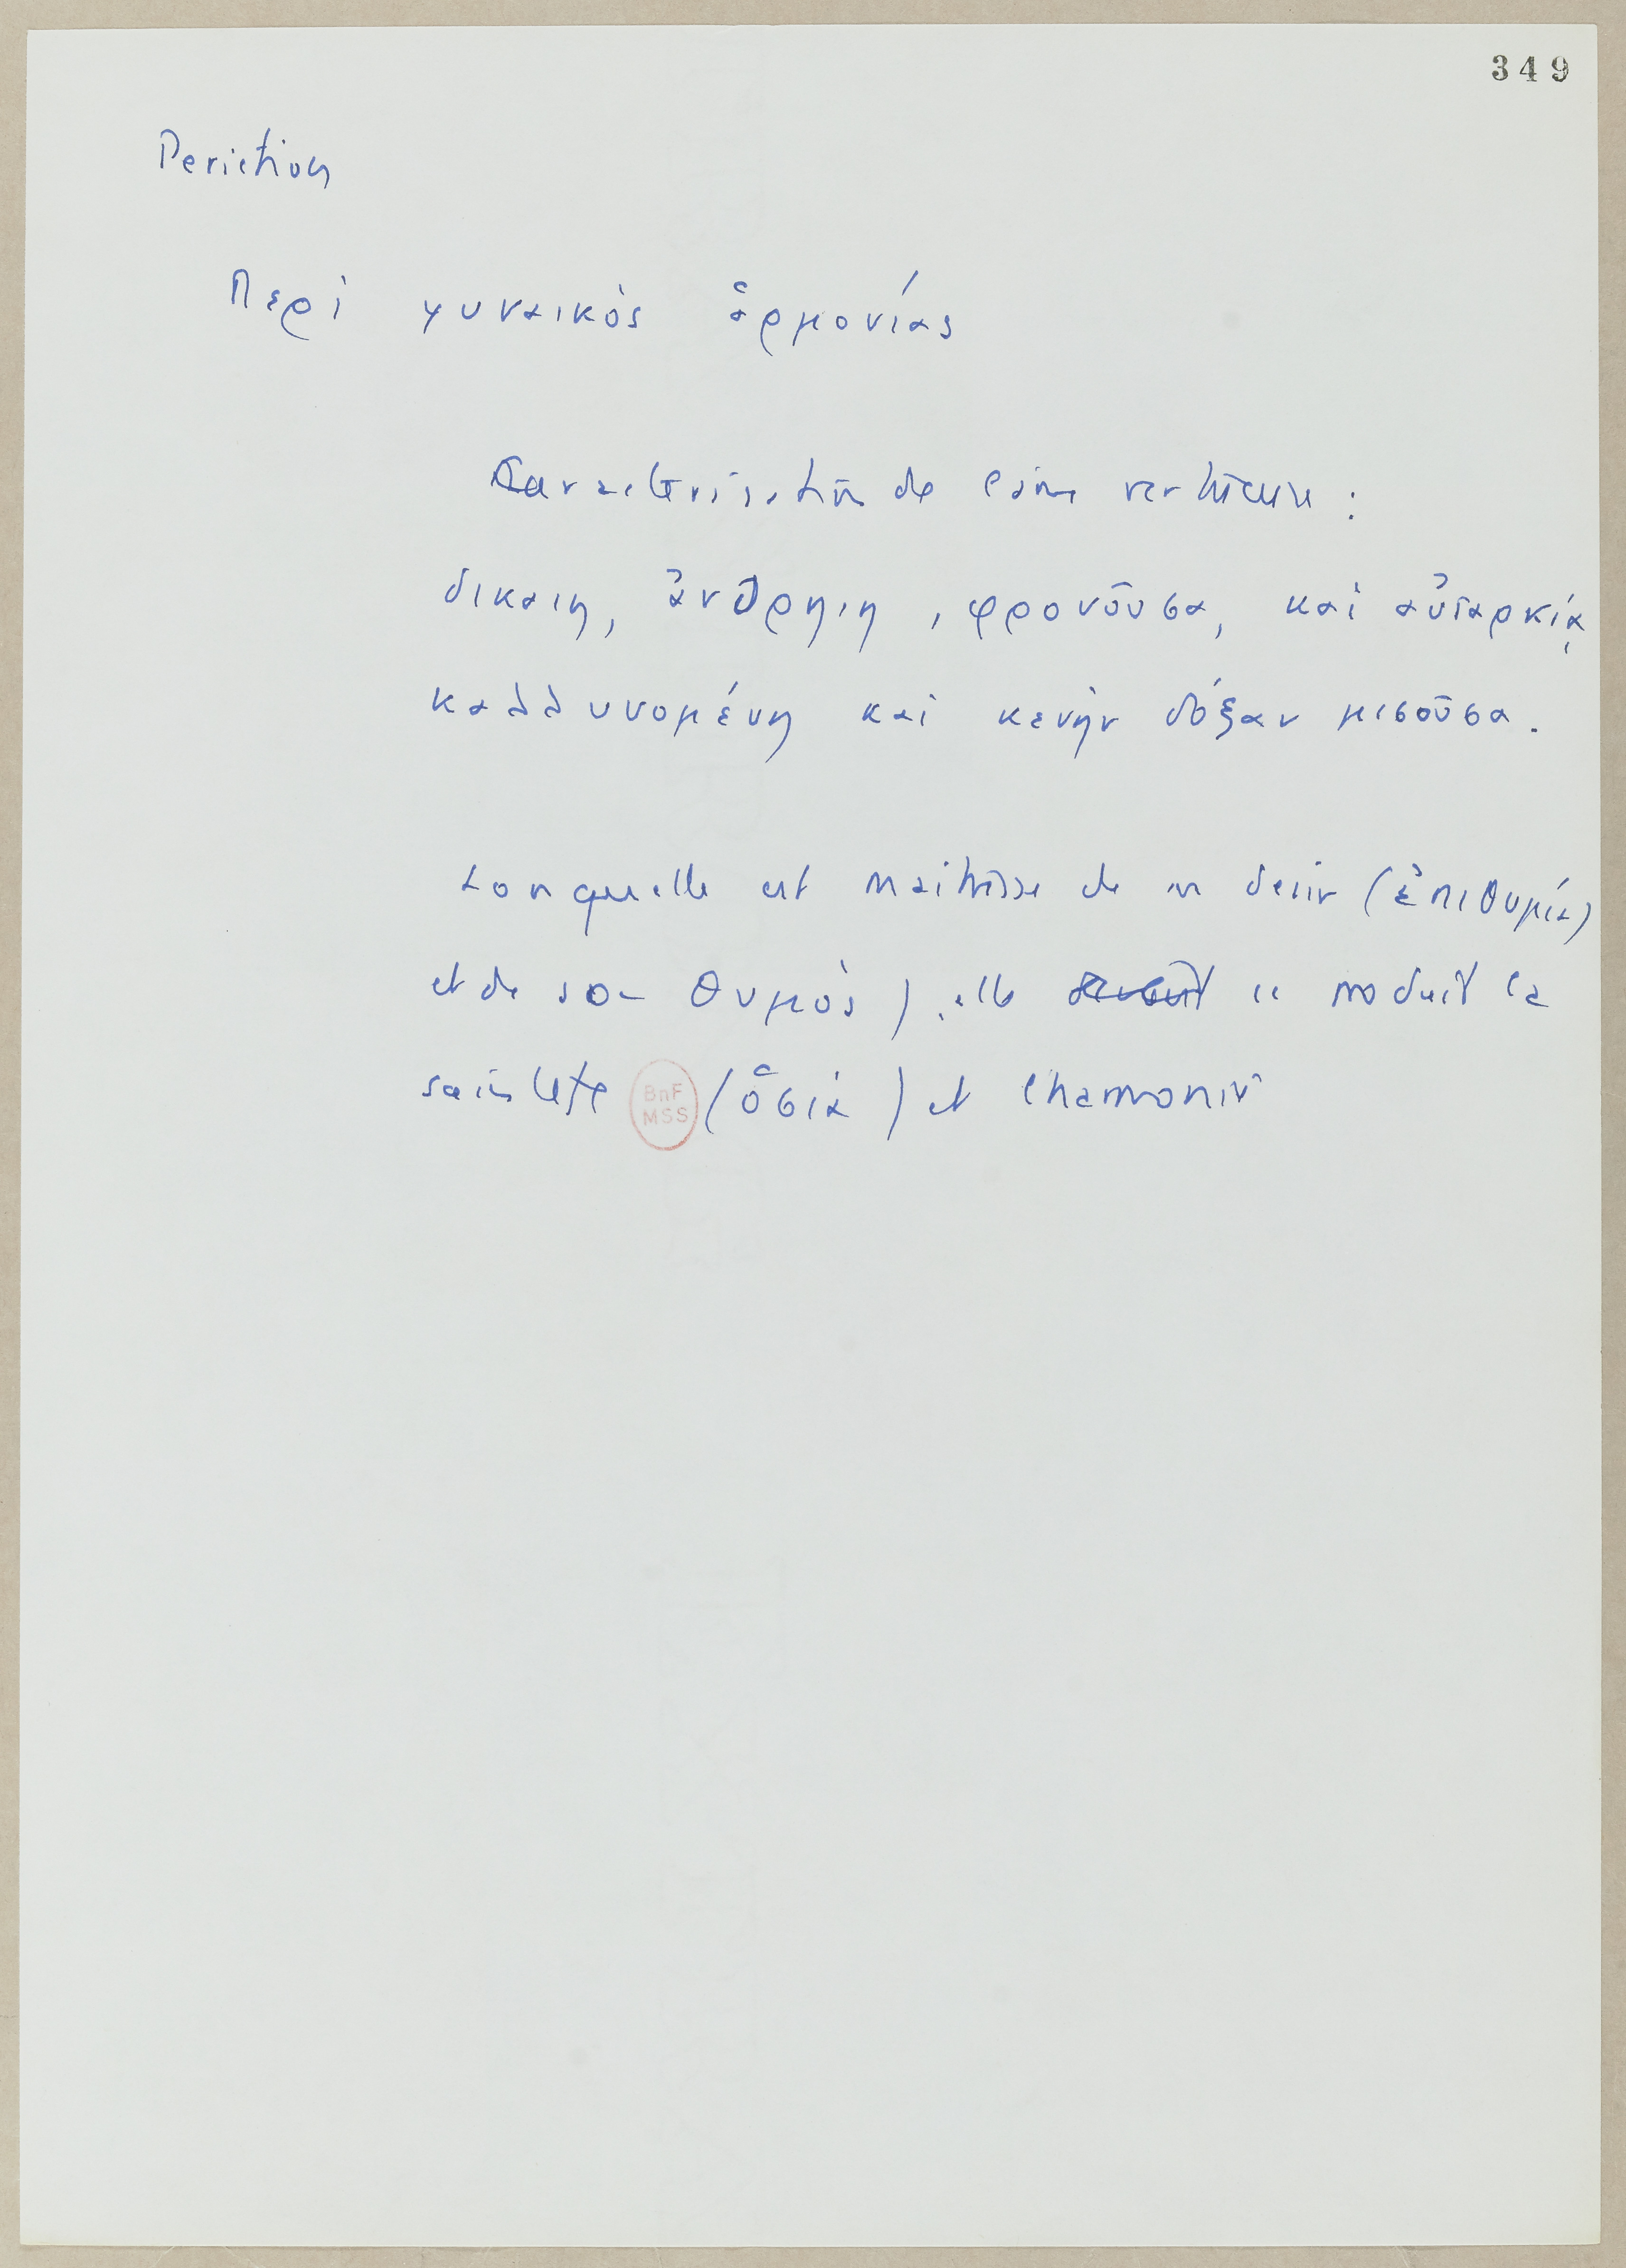 349
Periction
Περὶ γυναικὸς ἁρμονίας
Caracterisation de l'âme vertueuse :
δικαιη, ἀνδρηιη, φρονοῦσα, καὶ αὐταρκίᾳ
καλλυνομένη καὶ κενὴν δόξαν μισοῦσα.
Lorsquelle est maitresse de son desir (ἐπιθυμία)
et de son θυμὸς) elle se produit la
saintete (ὁσιὰ) et lharmonie
BnF
MSS